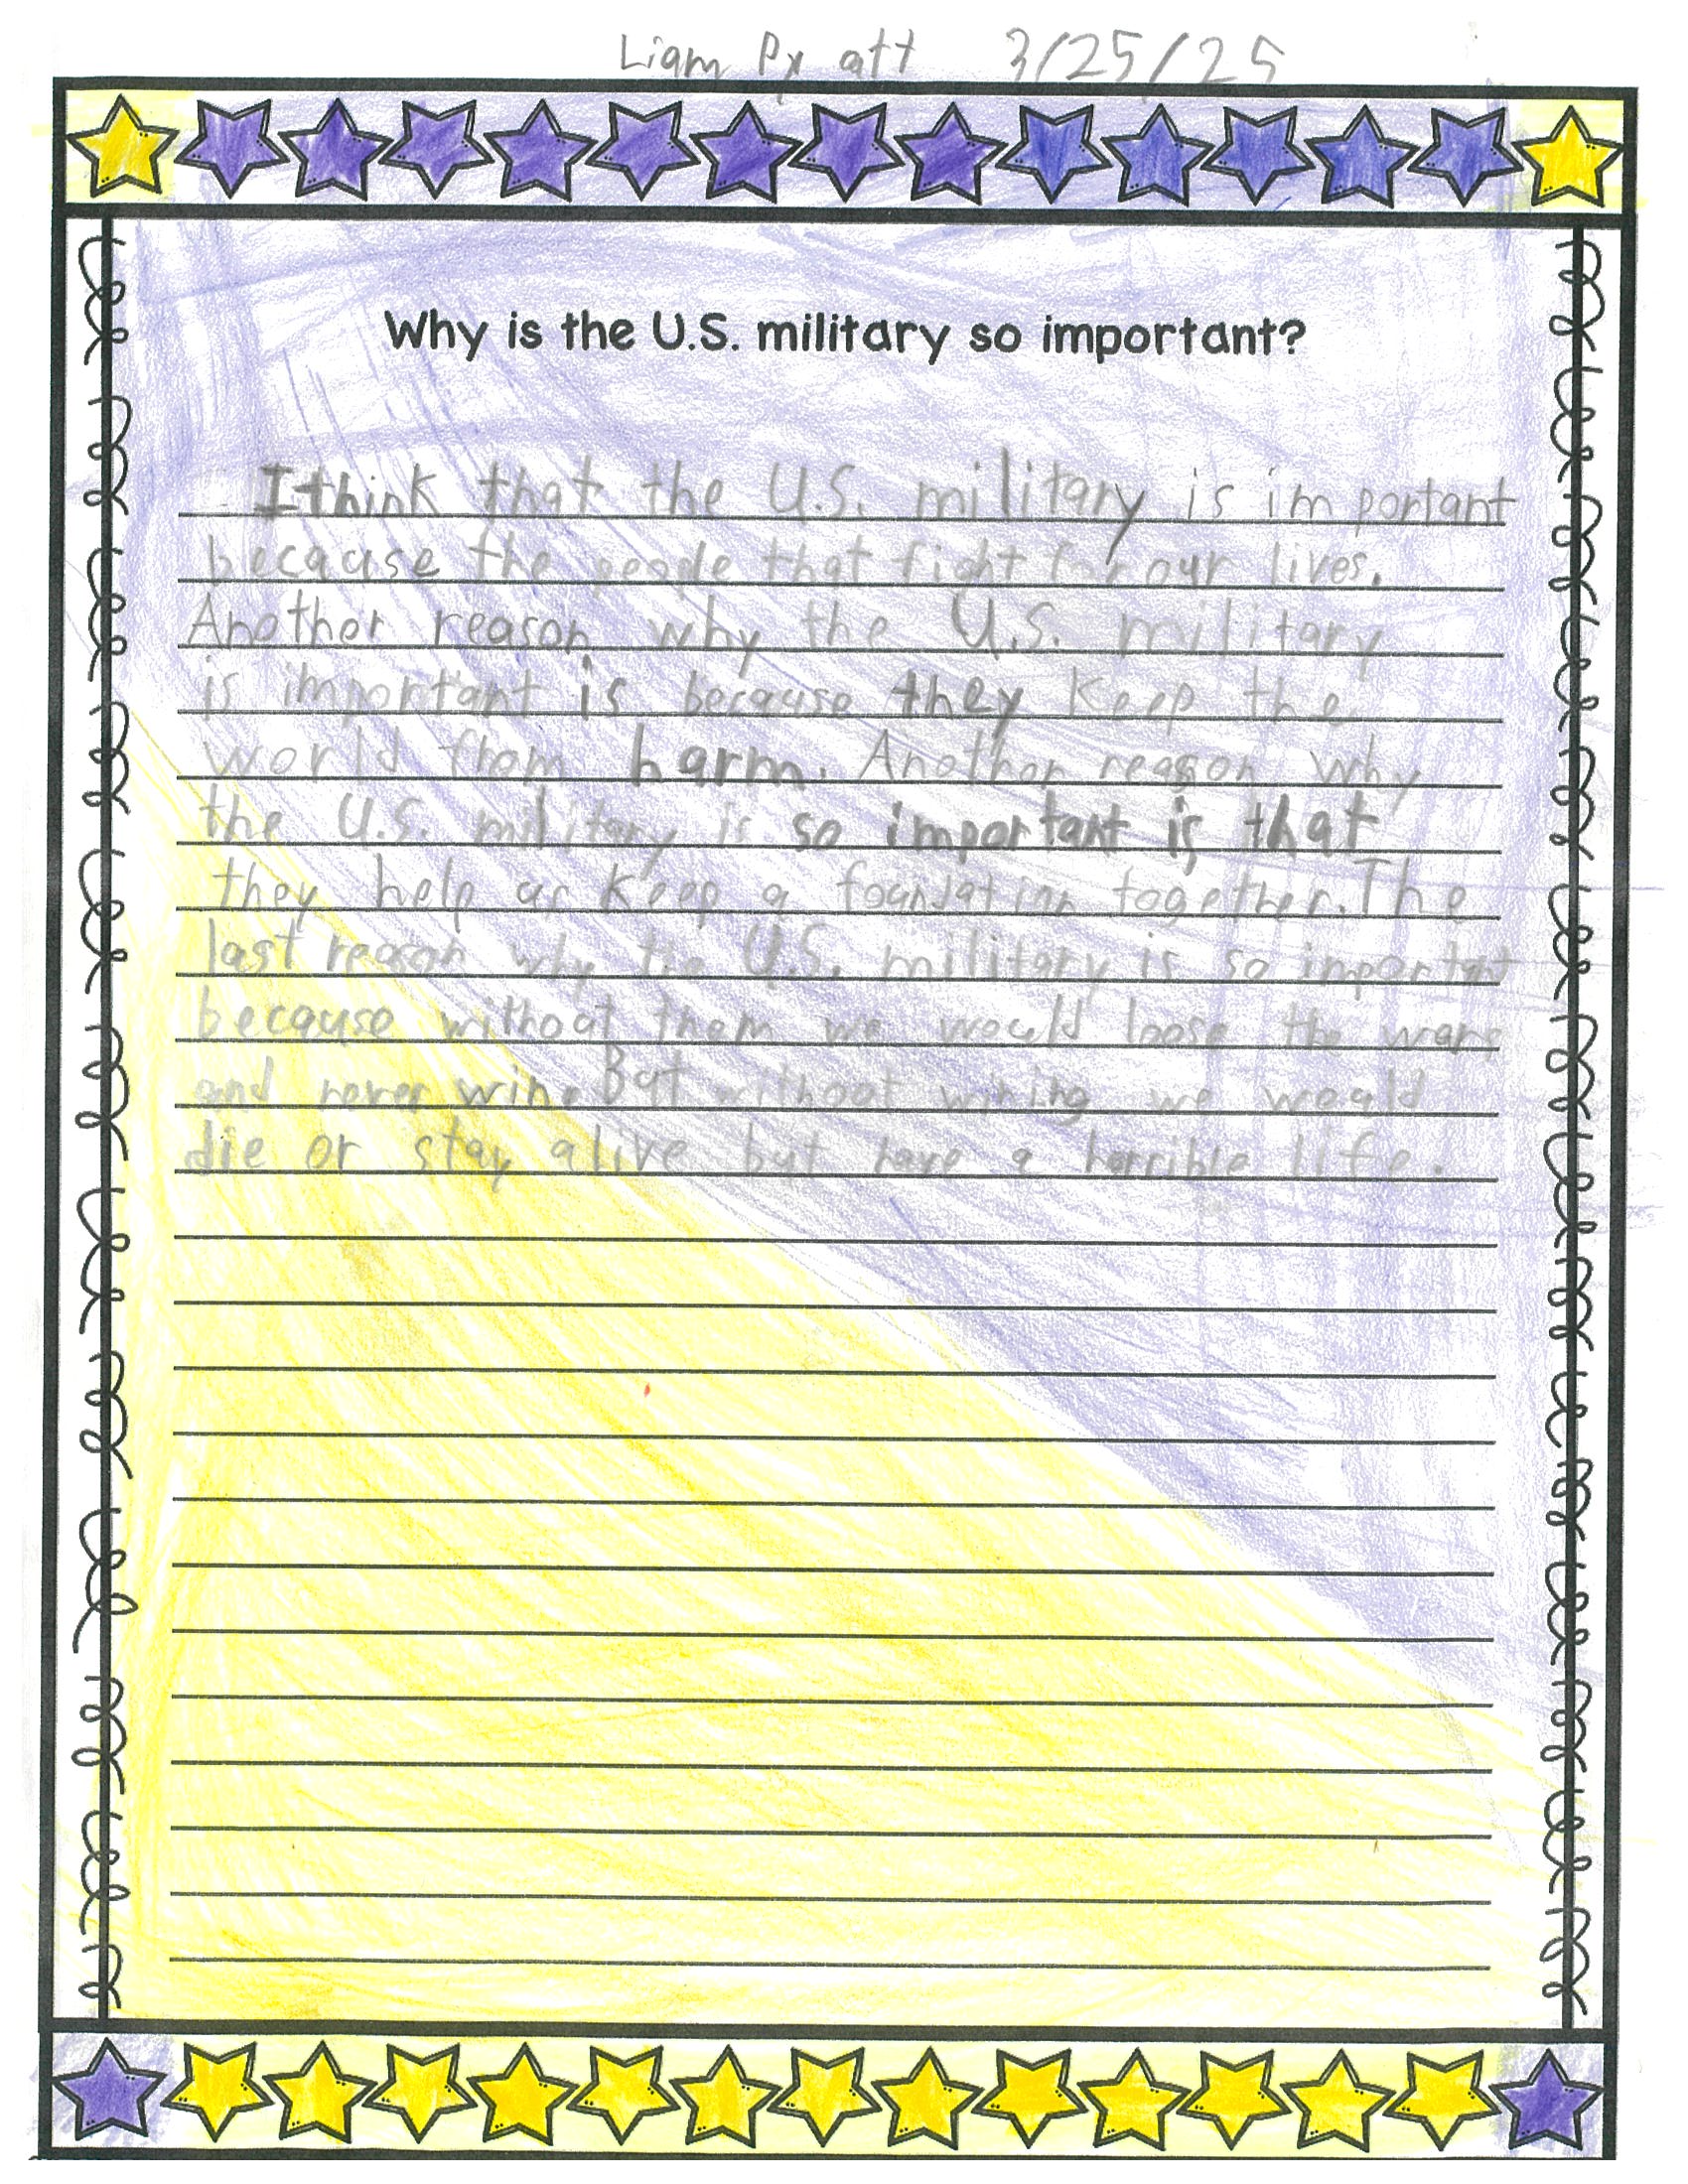 Liam Pyatt 3/25/25
Why is the U.S. military so important?
I think that the U.S. military is important
because the people that fight for our lives.
Another reason why the U.S. military
is important is because they keep the
world from harm. Another reason why
the U.S. military is so important is that
they help us keep a foundation together. The
last reason why the U.S. military is so important
because without them we would loose the wars
and never win. But without wining we would
die or stay alive but have a horrible life.